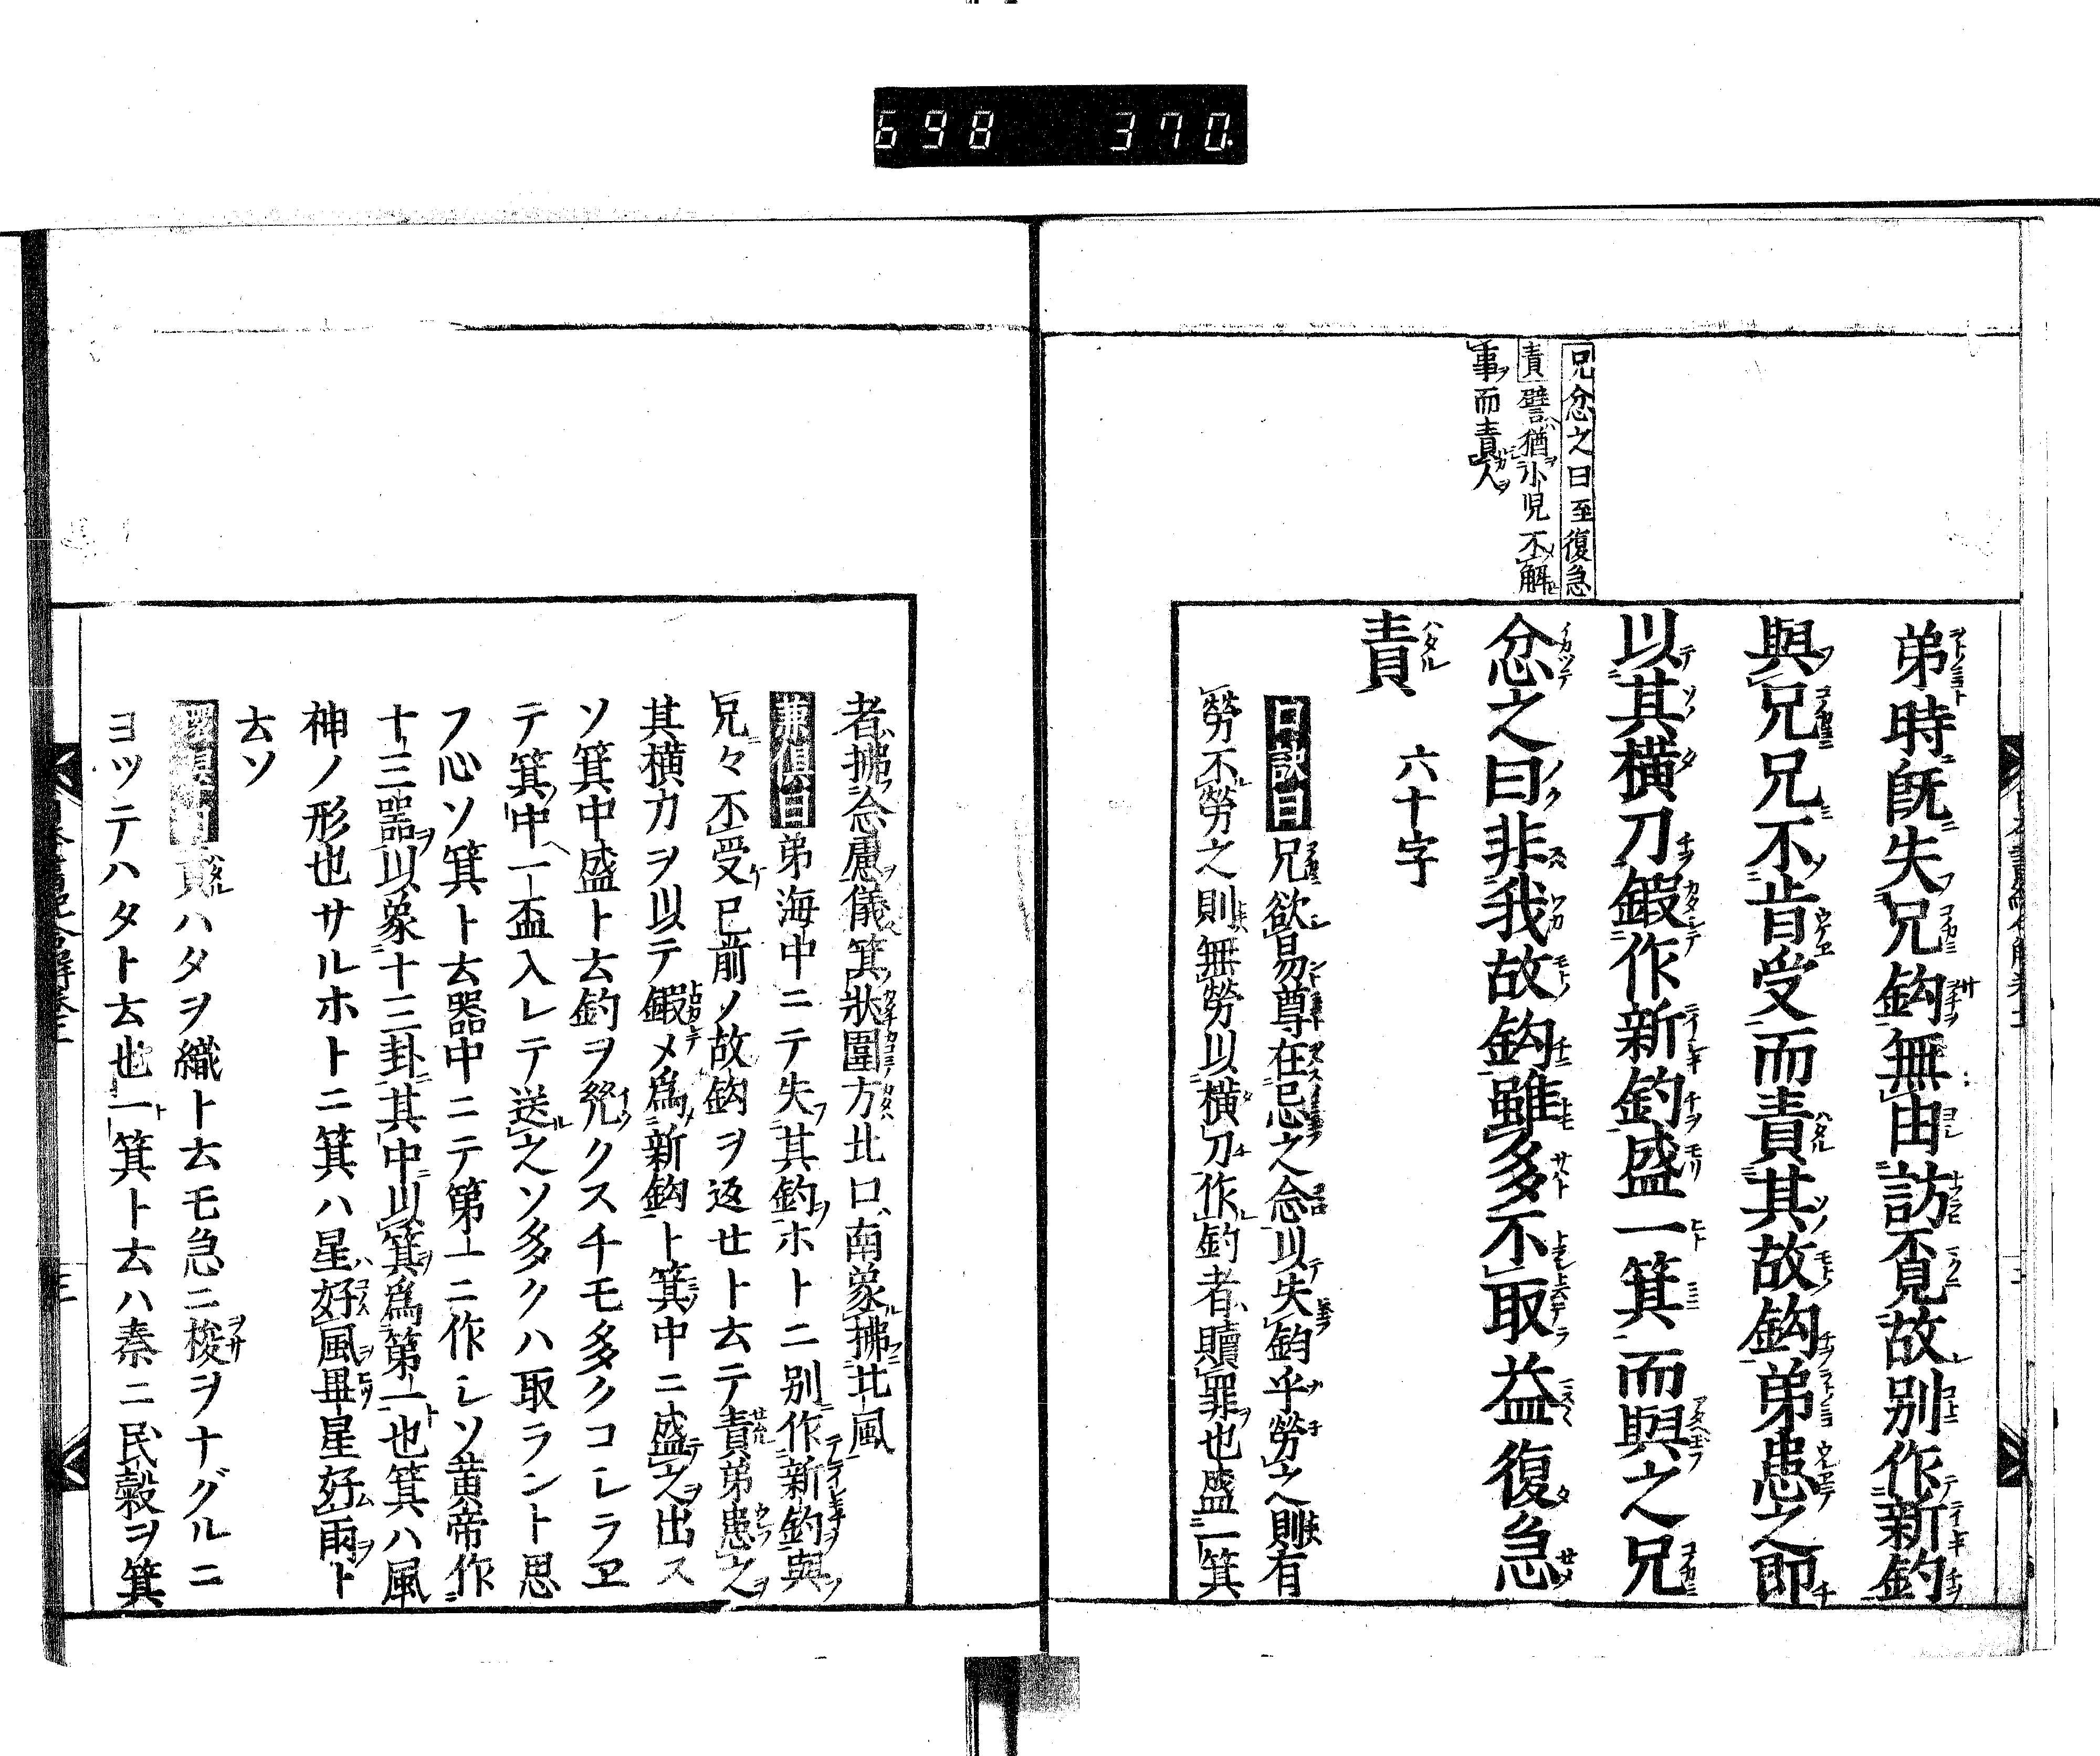 698 370.
兄忿之曰至復急
責譬猶小児不解
事而責人
弟時既失兄鈎無由訪覓故别作新釣
與兄兄不肯受而責其故鈎弟患之即
以其横刀鍜作新釣盛一箕而與之兄
忿之曰非我故鈎雖多不取益復急
責 六十字
口訣曰兄欲易尊在忌之念以失釣乎勞之則有
勞不勞之則無勞以横刀作釣者贖罪也盛一箕
者拂念慮儀箕狀圍方北口南象拂北風
兼倶曰弟海中ニテ失其釣ホトニ别作新釣與
兄々不受已前ノ故鈎ヲ返セト云テ責弟患之
其横刀ヲ以テ鍜メ為新鈎ト箕中ニ盛之出ス
ソ箕中盛ト云釣ヲ勞クスチモ多クコレラヱ
テ箕中一盃入レテ送之ソ多クハ取ラント思
フ心ソ箕ト云器中ニテ第一ニ作レソ黄帝作
十三器以象十三卦其中以箕為第一也箕ハ風
神ノ形也サルホトニ箕ハ星好風畢星好雨ト
云ソ
責ハタヲ織ト云モ急ニ梭ヲナグルニ
ヨッテハタト云也一箕ト云ハ秦ニ民穀ヲ箕